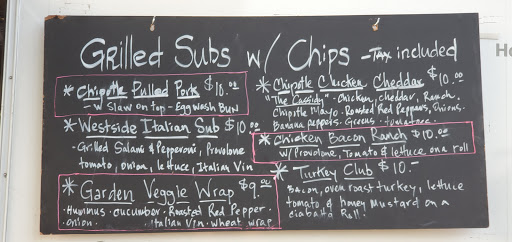 Grilled Subs w/ Chips - Tax included
* Chipotle Pulled Pork $10.00
w/ Slaw on top - Egg Wash Bun
* Westside Italian Sub $10.00
- Grilled Salami & Pepperoni, Provolone
tomato, onion, lettuce, Italian Vin
* Garden Veggie Wrap $9.00
- Hummus - cucumber - Roasted Red Pepper -
- onion - Italian Vin - Wheat wrap
* Chipotle Chicken Cheddar $10.00
"The Cassidy" - Chicken, cheddar, Ranch,
Chipotle Mayo - Roasted Red Peppers, Onions -
Banana peppers - Greens -
* Chicken Bacon Ranch $10.00
w/ Provolone, Tomato & lettuce on a roll
* Turkey Club $10.-
Bacon, oven roast turkey, lettuce
tomato, & honey Mustard on a
ciabatta Roll.